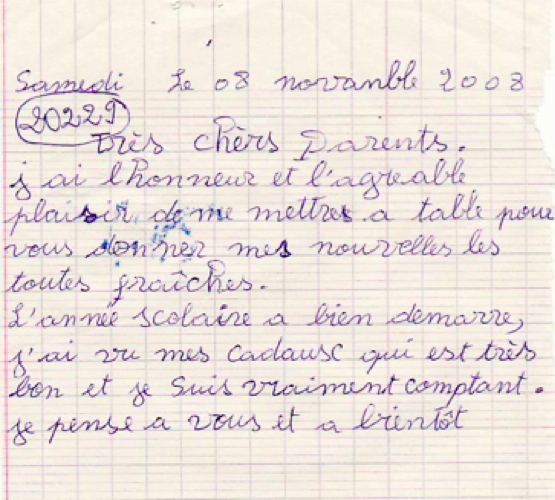 Samedi Le 08 novanble 2008
20229
Très chèrs Parents.
j ai lhonneur et l'agreable
plaisir de me mettres a table pour
vous donner mes nouvelles les
toutes fraîches.
L'année scolaire a bien demarre,
j'ai vu mes cadausc qui est très
bon et je suis vraiment comptant.
je pense a vous et a bientôt